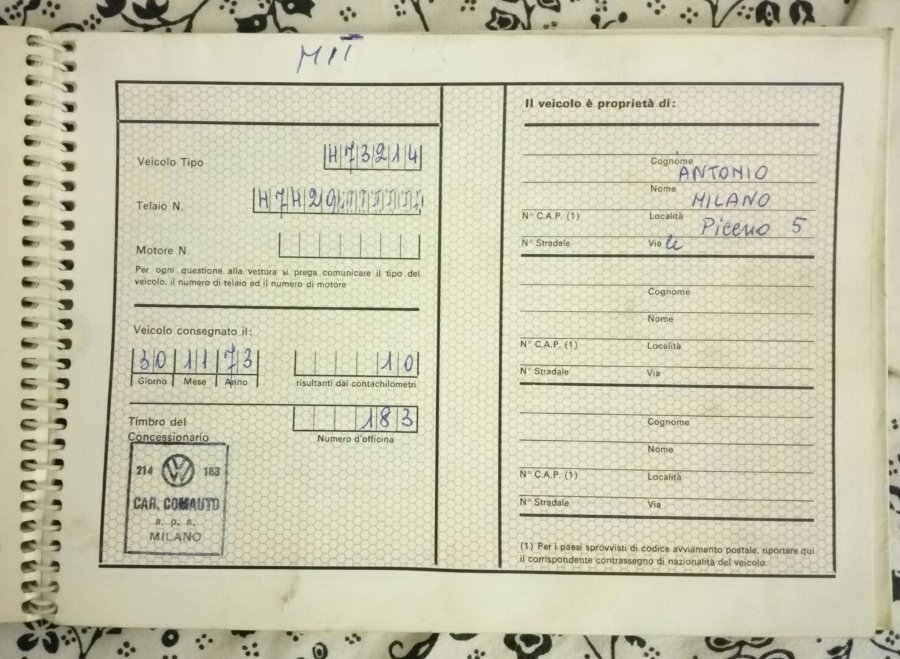 MIT
Veicolo Tipo H73214
Telaio N. H7H29
Motore N.
Per ogni questione alla vettura si prega comunicare il tipo del
veicolo, il numero di telaio ed il numero di motore
Veicolo consegnato il:
30 11 73 10
Giorno Mese Anno risultanti dai contachilometri
Timbro del
Concessionario
183
Numero d'officina
214 183
CAR. COMAUTO
s. p. a.
MILANO
Il veicolo è proprietà di:
Cognome
ANTONIO
Nome
MILANO
N° C.A.P. (1) Località
Piceno 5
N° Stradale Via le
Cognome
Nome
N° C.A.P. (1) Località
N° Stradale Via
Cognome
Nome
N° C.A.P. (1) Località
N° Stradale Via
(1) Per i paesi sprovvisti di codice avviamento postale, riportare qui
il corrispondente contrassegno di nazionalità del veicolo.